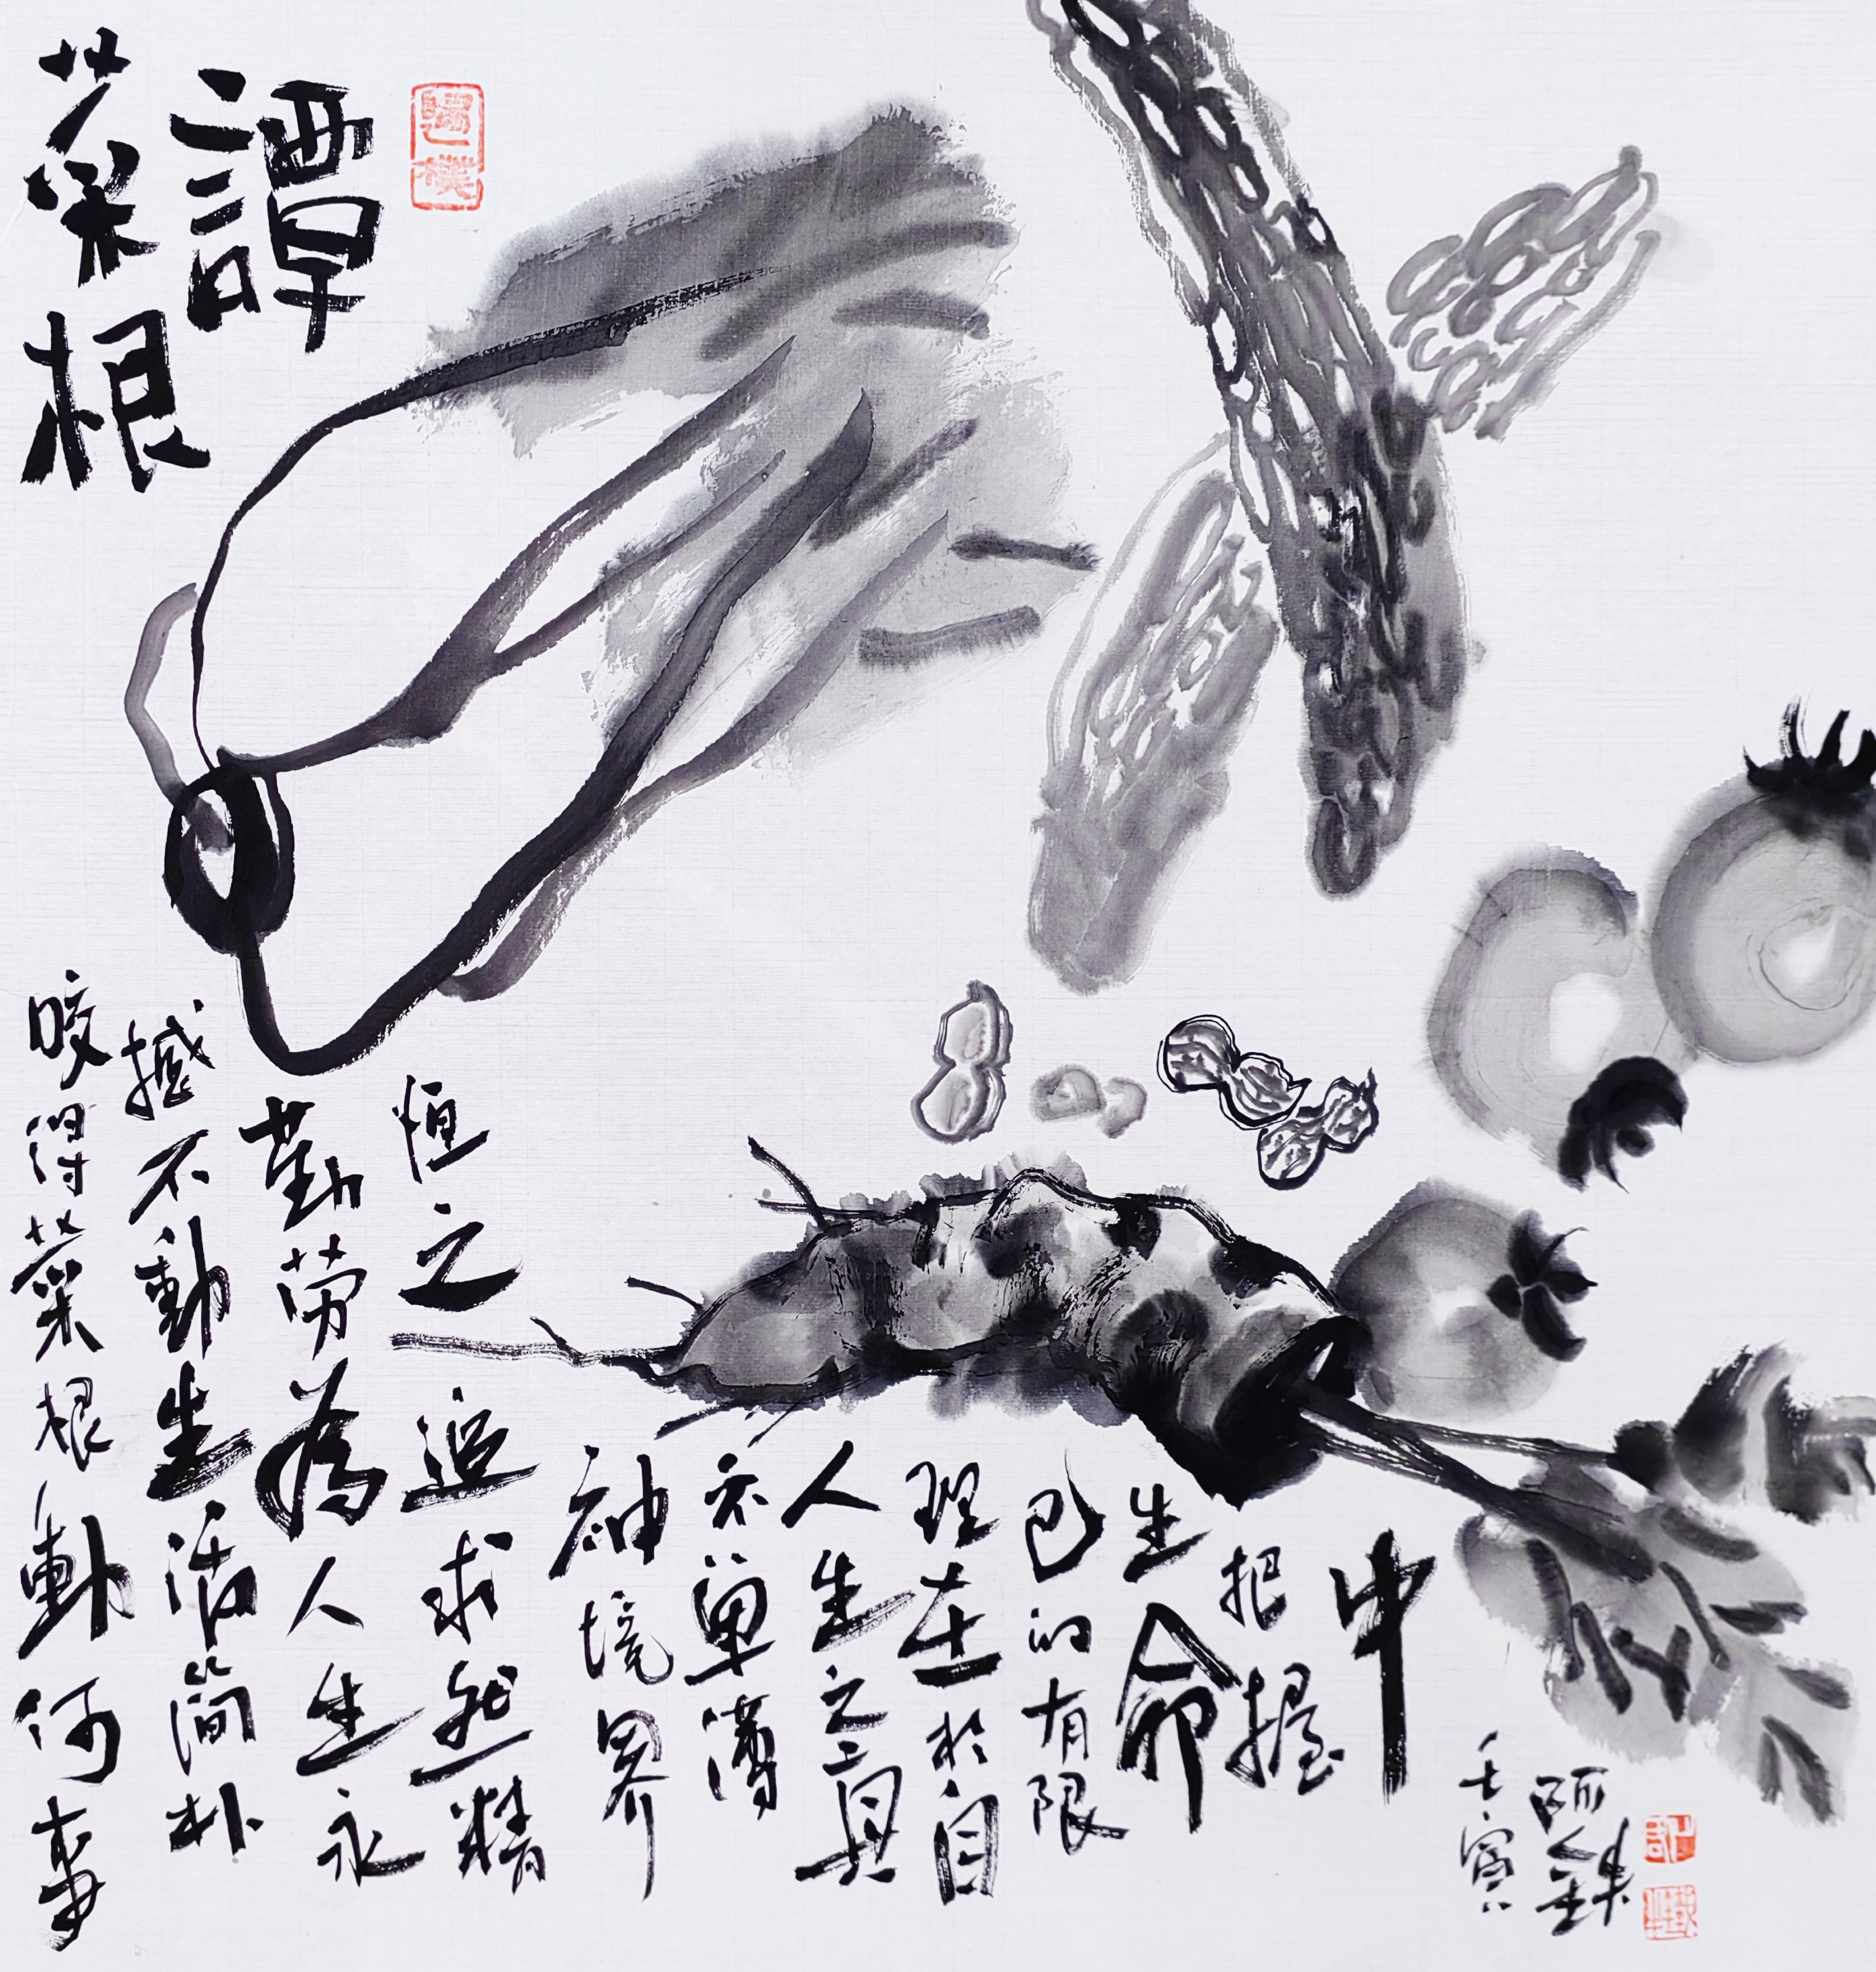 菜根
譚
咬得菜根動何事
撼不動生活簡朴
勤劳為人生永
恒之追求然精
神境界
不單薄
人生之真
理在於自
己的有限
生命
把握
中
壬寅
阿